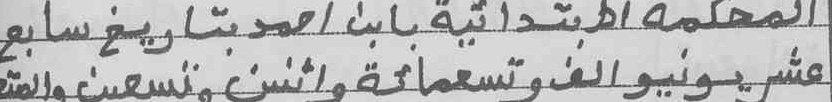 المحكمة الابتدائية بابن احمد بتاريخ سابع
عشر يونيو الف وتسعمائة واثنين وتسعين